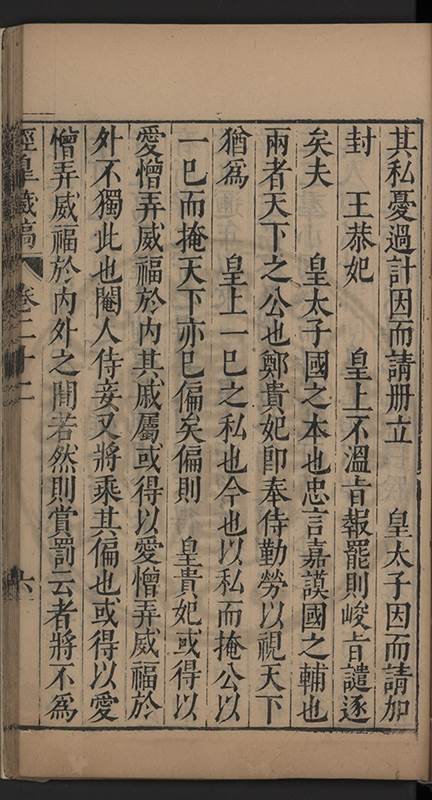 其私憂過計因而請册立　皇太子因而請加
封　王恭妃　皇上不溫旨報罷則峻旨譴逐
矣夫　皇太子國之本也忠言嘉謨國之輔也
兩者天下之公也鄭貴妃卽奉侍勤勞以視天下
猶爲　皇上一巳之私也今也以私而掩公以
一巳而掩天下亦巳偏矣偏則　皇貴妃或得以
愛憎弄威福於内其戚屬或得以愛憎弄威福於
外不獨此也閹人侍妾又將乘其偏也或得以愛
憎弄威福於内外之間若然則賞罰云者將不爲
經皐藏稿　卷二十二　六